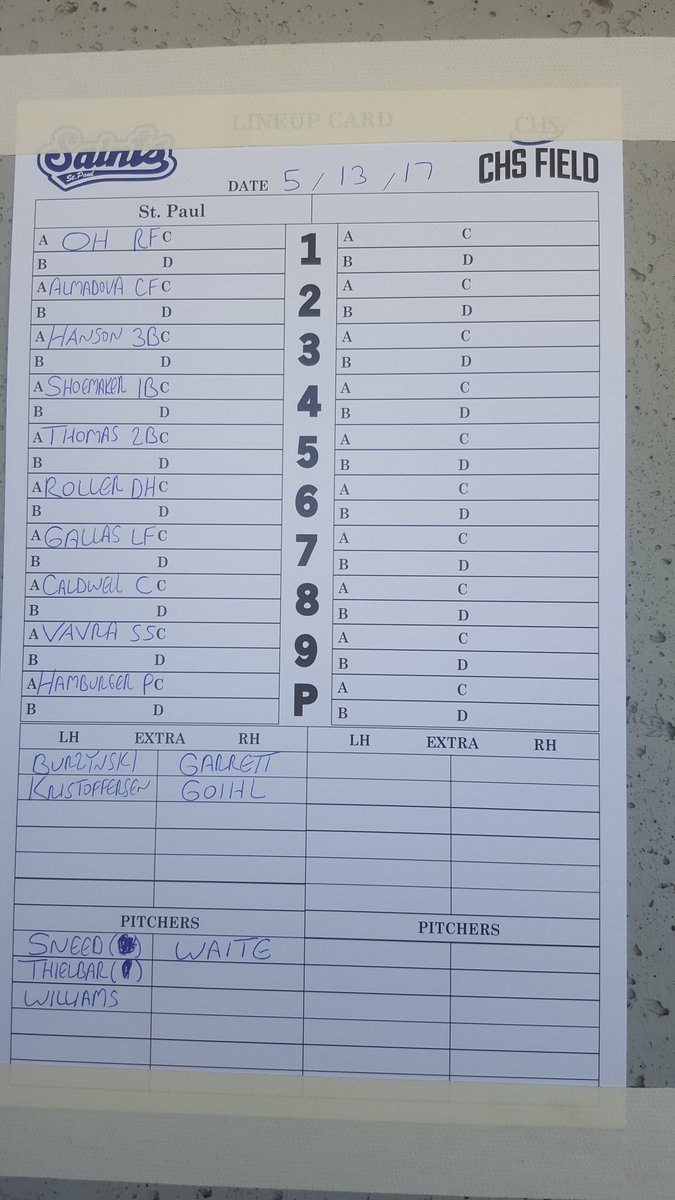 LINEUP CARD
Saints
St. Paul
CHS
CHS FIELD
DATE 5 / 13 / 17
St. Paul
A OH RF C 1 A C
B D B D
A ALMADOVA CF C 2 A C
B D B D
A HANSON 3B C 3 A C
B D B D
A SHOEMAKER 1B C 4 A C
B D B D
A THOMAS 2B C 5 A C
B D B D
A ROLLER DH C 6 A C
B D B D
A GALLAS LF C 7 A C
B D B D
A CALDWELL C C 8 A C
B D B D
A VAVRA SS C 9 A C
B D B D
A HAMBURGER P C P A C
B D B D
LH EXTRA RH LH EXTRA RH
BURZYNSKI GARRETT
KRISTOFFERSEN GOIHL
PITCHERS PITCHERS
SNEED ( ) WAITE
THIELBAR ( )
WILLIAMS